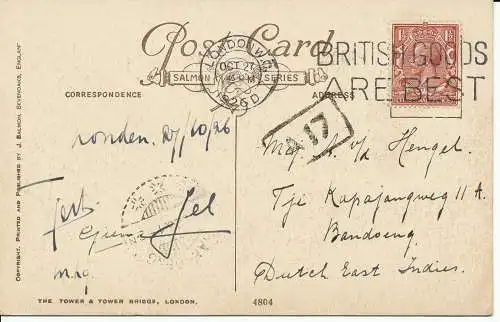 Post Card
SALMON SERIES
CORRESPONDENCE
ADDRESS
LONDON.W.1
OCT 27
1926
D
BRITISH GOODS
ARE BEST
A 17
Londen 27/10/26
v/d Hengel.
Tji Kapajangweg 11 A.
Bandoeng
Dutch East Indies.
COPYRIGHT. PRINTED AND PUBLISHED BY J. SALMON, SEVENOAKS, ENGLAND
THE TOWER & TOWER BRIDGE, LONDON.
4804